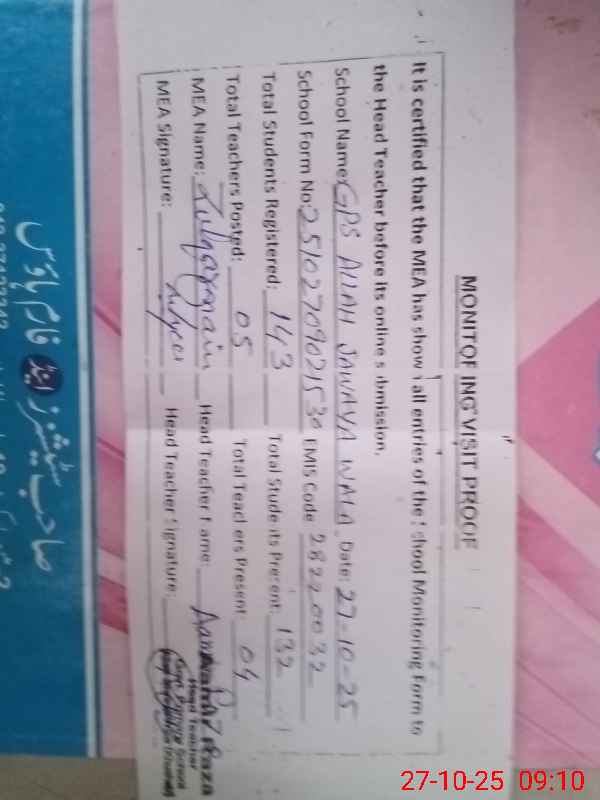 MONITORING VISIT PROOF
It is certified that the MEA has shown all entries of the School Monitoring Form to
the Head Teacher before its online submission.
School Name: GPS ALLAH JAWAYA WALA Date: 27-10-25
School Form No: 2510270902153 EMIS Code 28220032
Total Students Registered: 143 Total Students Present: 132
Total Teachers Posted: 05 Total Teachers Present: 04
MEA Name: Zulqarnain Head Teacher Name: Raza
MEA Signature: Head Teacher Signature:
Head Teacher
School
صاحب سٹیشنرز اینڈ فارم ہاؤس
27-10-25 09:10